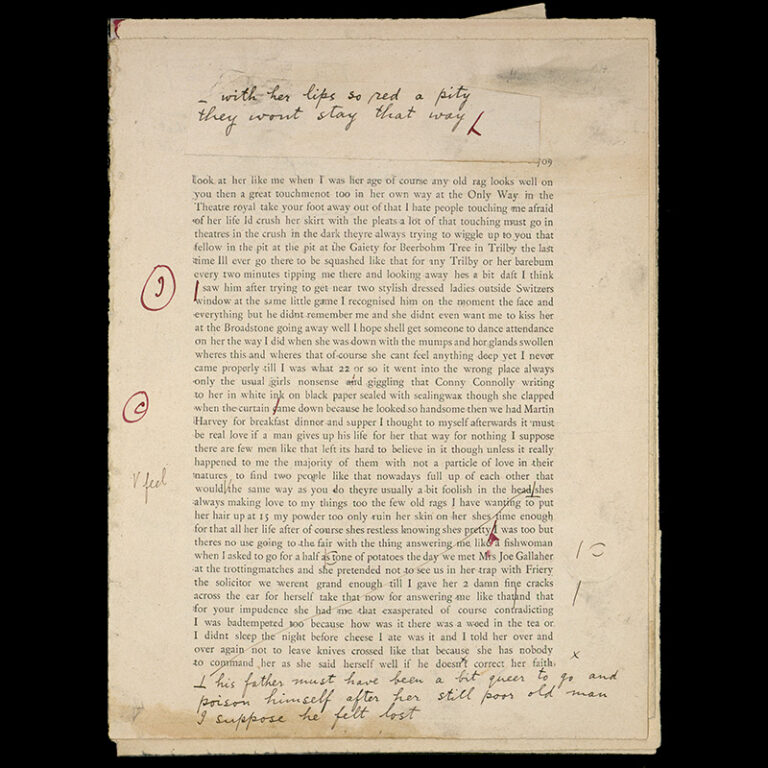 ⊥ with her lips so red a pity
they wont stay that way
709
look at her like me when I was her age of course any old rag looks well on
you then a great touchmenot too in her own way at the Only Way in the
Theatre royal take your foot away out of that I hate people touching me afraid
of her life Id crush her skirt with the pleats a lot of that touching must go in
theatres in the crush in the dark theyre always trying to wiggle up to you that
fellow in the pit at the pit at the Gaiety for Beerbohm Tree in Trilby the last
time Ill ever go there to be squashed like that for any Trilby or her barebum
every two minutes tipping me there and looking away hes a bit daft I think
I saw him after trying to get near two stylish dressed ladies outside Switzers
window at the same little game I recognised him on the moment the face and
everything but he didnt remember me and she didnt even want me to kiss her
at the Broadstone going away well I hope shell get someone to dance attendance
on her the way I did when she was down with the mumps and her glands swollen
wheres this and wheres that of course she cant feel anything deep yet I never
came properly till I was what 22 or so it went into the wrong place always
only the usual girls nonsense and giggling that Conny Connolly writing
to her in white ink on black paper sealed with sealingwax though she clapped
when the curtain came down because he looked so handsome then we had Martin
Harvey for breakfast dinner and supper I thought to myself afterwards it must
be real love if a man gives up his life for her that way for nothing I suppose
there are few men like that left its hard to believe in it though unless it really
happened to me the majority of them with not a particle of love in their
natures to find two people like that nowadays full up of each other that
would the same way as you do theyre usually a bit foolish in the head shes
always making love to my things too the few old rags I have wanting to put
her hair up at 15 my powder too only ruin her skin on her shes time enough
for that all her life after of course shes restless knowing shes pretty I was too but
theres no use going to the fair with the thing answering me like a fishwoman
when I asked to go for a half as tone of potatoes the day we met Mrs Joe Gallaher
at the trottingmatches and she pretended not to see us in her trap with Friery
the solicitor we werent grand enough till I gave her 2 damn fine cracks
across the ear for herself take that now for answering me like thatand that
for your impudence she had me that exasperated of course contradicting
I was badtempered too because how was it there was a weed in the tea or
I didnt sleep the night before cheese I ate was it and I told her over and
over again not to leave knives crossed like that because she has nobody
to command her as she said herself well if he doesnt correct her faith
⊥ his father must have been a bit queer to go and
poison himself after her still poor old man
I suppose he felt lost
9
c
feel
x